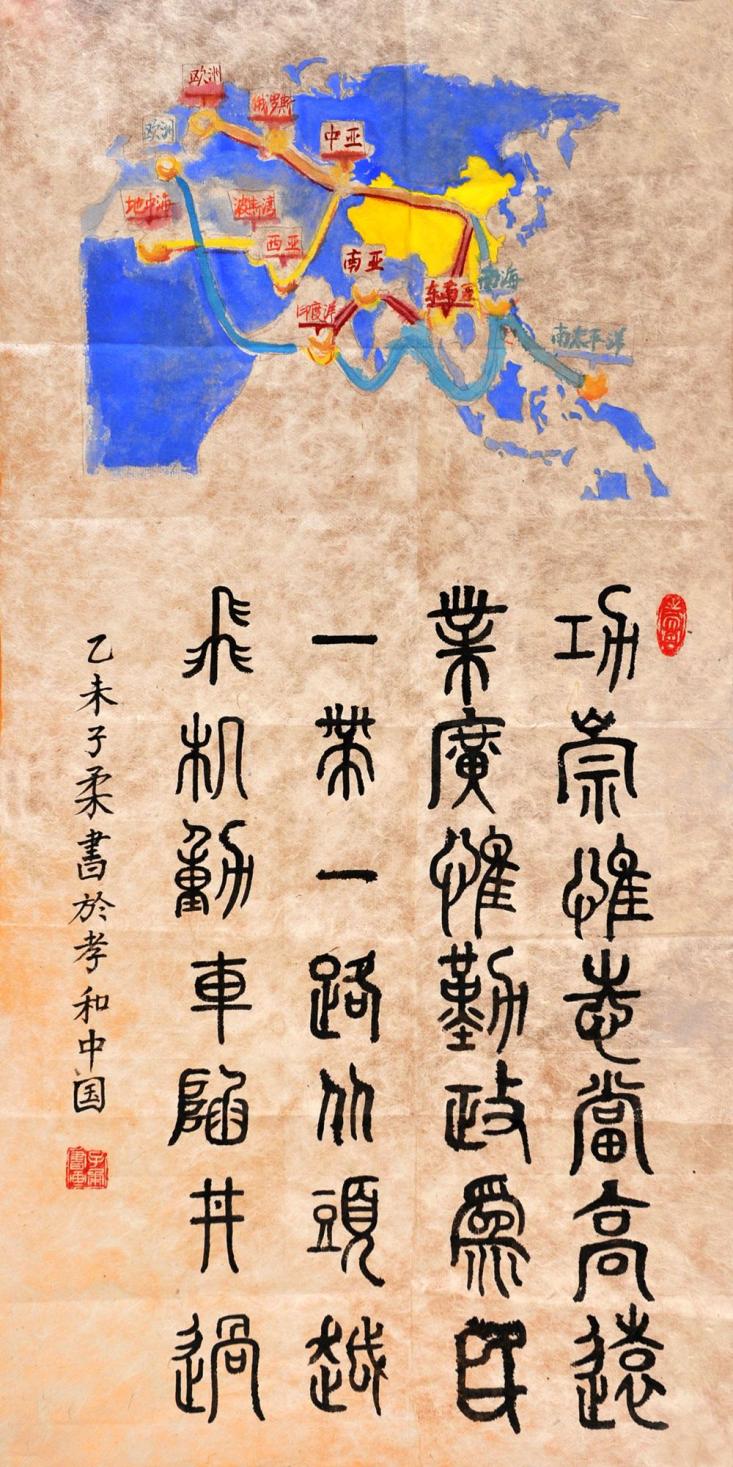 欧洲
俄罗斯
欧洲
中亚
地中海
波斯湾
西亚
南亚
印度洋
东南亚
南海
南太平洋
功崇惟志當高遠
業廣惟勤政爲民
一帶一路从頭越
飛机動車過
乙未子柔書於孝和中国
子柔書畫